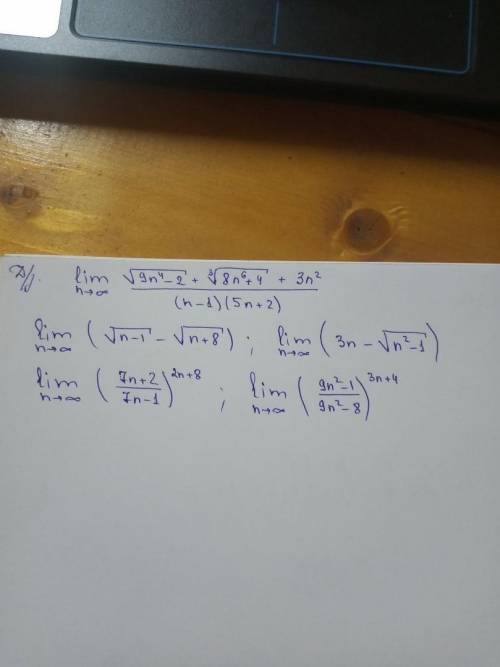 Д/з. lim n→∞ (√(9n⁴−2) + ∛(8n⁶+4) + 3n²) / ((n−1)(5n+2))
lim n→∞ (√(n−1) − √(n+8)) ; lim n→∞ (3n − √(n²−1))
lim n→∞ ((7n+2)/(7n−1))^(2n+8) ; lim n→∞ ((9n²−1)/(9n²−8))^(3n+4)